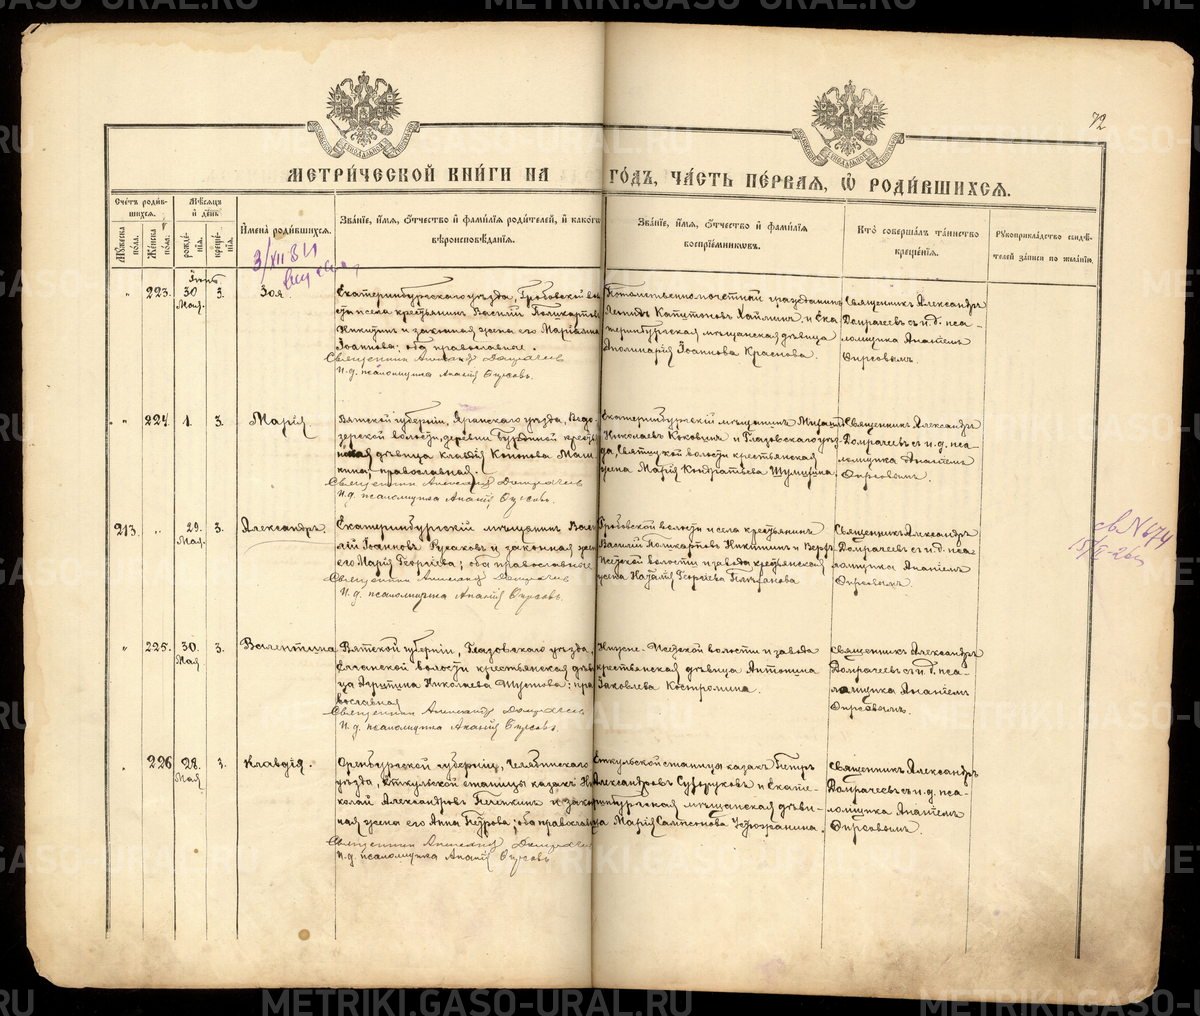 72
МЕТРИ́ЧЕСКОЙ КНИ́ГИ НА ГО́ДЪ, ЧА́СТЬ ПЕ́РВАЯ, Ѿ РОДИ́ВШИХСЯ.
Сче́тъ роди́вшихся.
Му́жеска по́ла.
Же́нска по́ла.
Мѣ́сяцъ и̑ де́нь
рожде́нія.
креще́нія.
И̑мена̀ роди́вшихся.
Зва́ніе, и̑́мя, о́тчество и̑ фами́лія роди́телей, и̑ како́гѡ
вѣроисповѣ́данія.
Зва́ніе, и̑́мя, о́тчество и̑ фами́лія
воспріе́мниковъ.
Кто̀ соверша́лъ та́инство
креще́нія.
Рукоприкла́дство свидѣ́-
телей за́писи по жела́нію.
3/XII 84
223. 30 Мая. 3. Зоя.
Екатеринбургскаго уѣзда, Гробовской во-
сти и села крестьянинъ Василій Поликарповъ
Никитинъ и законная жена его Маріанна
Іоаннова; оба православные.
Священникъ Александръ Домрачевъ
И. д. псаломщика Ананій Фирсовъ.
Потомственно-почетный гражданинъ
Леонидъ Капитоновъ и Ека-
теринбургская мѣщанская дѣвица
Аполинарія Іоаннова Краснова.
Священникъ Александръ
Домрачевъ съ и. д. пса-
ломщика Ананіемъ
Фирсовымъ.
224. 1. 3. Марія.
Вятской губерніи, Яранскаго уѣзда,
волости, деревни кресть-
дѣвица Клавдія Кононова
православная.
Священникъ Александръ Домрачевъ
И. д. псаломщика Ананій Фирсовъ.
Екатеринбургскій мѣщанинъ
Николаевъ и Глазовскаго уѣз-
да, Святицкой волости крестьянская
жена Марія Кондратьева
Священникъ Александръ
Домрачевъ съ и. д. пса-
ломщика Ананіемъ
Фирсовымъ.
213. 29. Мая. 3. Александръ.
Екатеринбургскій мѣщанинъ Васи-
лій Іоанновъ Русаковъ и законная жена
его Марія Георгіева; оба православные
Священникъ Александръ Домрачевъ
И. д. псаломщика Ананій Фирсовъ.
Гробовской волости и села крестьянинъ
Василій Поликарповъ Никитинъ и Верх-
Исетской волости и завода крестьянская
жена Наталія Георгіева
Священникъ Александръ
Домрачевъ съ и. д. пса-
ломщика Ананіемъ
Фирсовымъ.
св N 674
225. 30. Мая 3. Валентина
Вятской губерніи, Глазовскаго уѣзда,
волости крестьянская дѣви-
ца Николаева; пра-
вославная
Священникъ Александръ Домрачевъ
И. д. псаломщика Ананій Фирсовъ.
Нижне-Исетской волости и завода
крестьянская дѣвица Антонина
Яковлева Костромина.
Священникъ Александръ
Домрачевъ съ и. д. пса-
ломщика Ананіемъ
Фирсовымъ.
226 28. Мая 3. Клавдія.
Оренбургской губерніи, Челябинскаго
уѣзда, Еткульской станицы казакъ Ни-
колай Александровъ Пеленкинъ и закон-
ная жена его Анна Петрова; оба православные
Священникъ Александръ Домрачевъ
И. д. псаломщика Ананій Фирсовъ
Еткульской станицы казакъ Петръ
Александровъ и Екате-
ринбургская мѣщанская дѣви-
ца Марія Сампсонова
Священникъ Александръ
Домрачевъ съ и. д. пса-
ломщика Ананіемъ
Фирсовымъ.
METRIKI.GASO-URAL.RU